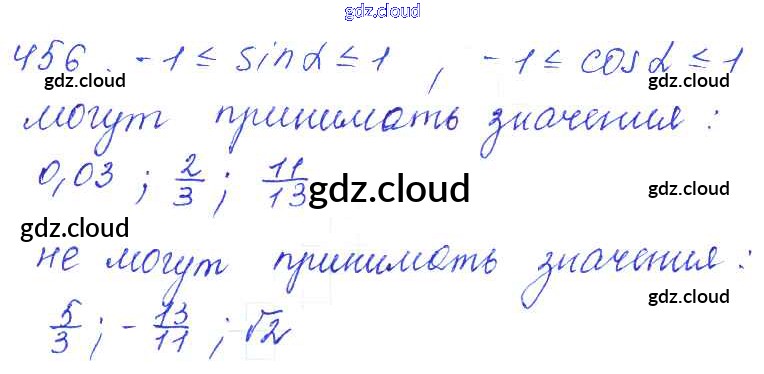 gdz.cloud
456. -1 ≤ sinα ≤ 1 , -1 ≤ cosα ≤ 1
gdz.cloud gdz.cloud
могут принимать значения:
0,03 ; 2/3 ; 11/13 gdz.cloud gdz.cloud
gdz.cloud
не могут принимать значения:
gdz.cloud
5/3 ; -13/11 ; √2
gdz.cloud gdz.cloud